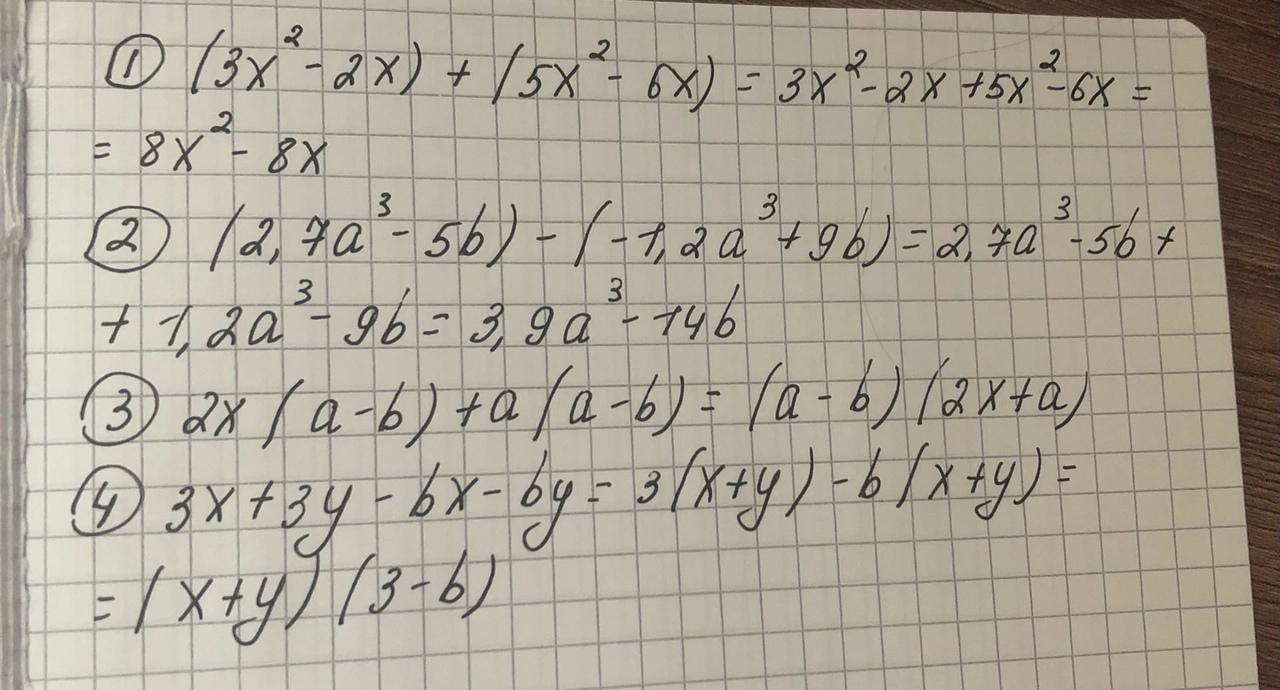 ① (3x² - 2x) + (5x² - 6x) = 3x² - 2x + 5x² - 6x =
= 8x² - 8x
② (2,7a³ - 5b) - (-1,2a³ + 9b) = 2,7a³ - 5b +
+ 1,2a³ - 9b = 3,9a³ - 14b
③ 2x (a - b) + a (a - b) = (a - b) (2x + a)
④ 3x + 3y - bx - by = 3 (x + y) - b (x + y) =
= (x + y) (3 - b)